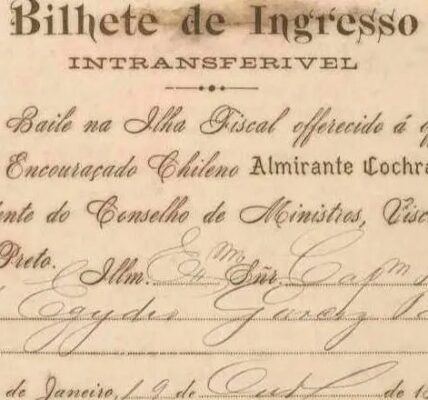 Bilhete de Ingresso
INTRANSFERIVEL
Baile na Ilha Fiscal offerecido á o
Encouraçado Chileno Almirante Cochra
ente do Conselho de Ministros, Visc
Preto. Illm. Exmo Snr. Capm
Egydio
de Janeiro, 19 de de 18